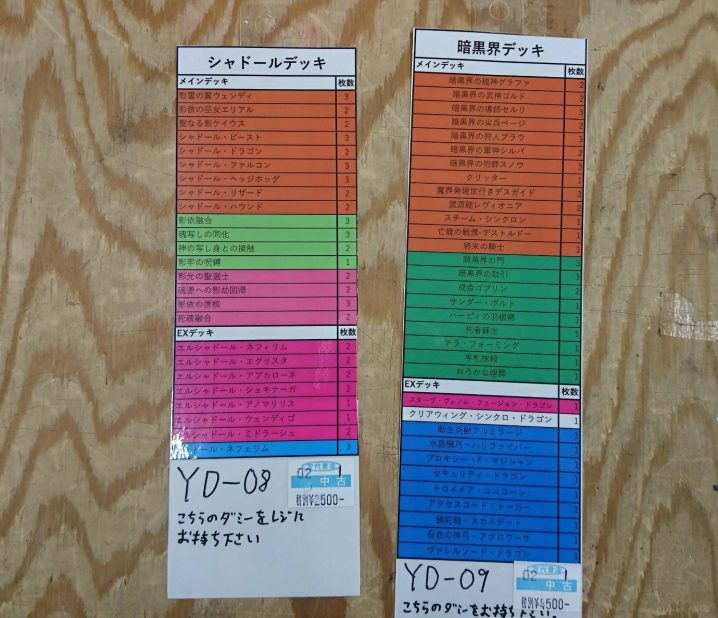 シャドールデッキ
メインデッキ 枚数
影霊の翼ウェンディ 3
影依の巫女エリアル 2
聖なる影ケイウス 2
シャドール・ビースト 3
シャドール・ドラゴン 2
シャドール・ファルコン 3
シャドール・ヘッジホッグ 3
シャドール・リザード 2
シャドール・ハウンド 2
影依融合 3
魂写しの同化 3
神の写し身との接触 2
影牢の呪縛 1
影光の聖選士 2
魂源への影劫回帰 2
影依の原核 3
死魂融合 2
EXデッキ 枚数
エルシャドール・ネフィリム 2
エルシャドール・エグリスタ 2
エルシャドール・アプカローネ 2
エルシャドール・シェキナーガ 2
エルシャドール・アノマリリス 1
エルシャドール・ウェンディゴ 1
エルシャドール・ミドラーシュ 2
ドール・ネフェリム 3
YD-08
02 1
中古
税別¥2500-
こちらのダミーをレジに
お持ち下さい
暗黒界デッキ
メインデッキ 枚数
暗黒界の龍神グラファ
暗黒界の武神ゴルド 2
暗黒界の導師セルリ 3
暗黒界の尖兵ベージ 2
暗黒界の狩人ブラウ 3
暗黒界の軍神シルバ 2
暗黒界の術師スノウ 3
クリッター 1
魔界発現世行きデスガイド 3
混源龍レヴィオニア 2
スチーム・シンクロン 1
亡龍の戦慄-デストルドー 1
終末の騎士 1
暗黒界の門 3
暗黒界の取引 3
成金ゴブリン 2
サンダー・ボルト 1
ハーピィの羽根帚 1
死者蘇生 1
テラ・フォーミング 1
手札抹殺 1
おろかな埋葬 1
EXデッキ 枚数
スターヴ・ヴェノム・フュージョン・ドラゴン 1
クリアウィング・シンクロ・ドラゴン 1
転生炎獣アルミラージ 1
水晶機巧-ハリファイバー 1
プロキシー・F・マジシャン 1
セキュリティ・ドラゴン 1
トロイメア・ユニコーン 1
アクセスコード・トーカー 1
鎖蛇龍-スカルデット 1
召命の神弓-アポロウーサ 1
ヴァレルソード・ドラゴン 1
YD-09
02 1
中古
税別¥4500-
こちらのダミーをお持ち下さい。